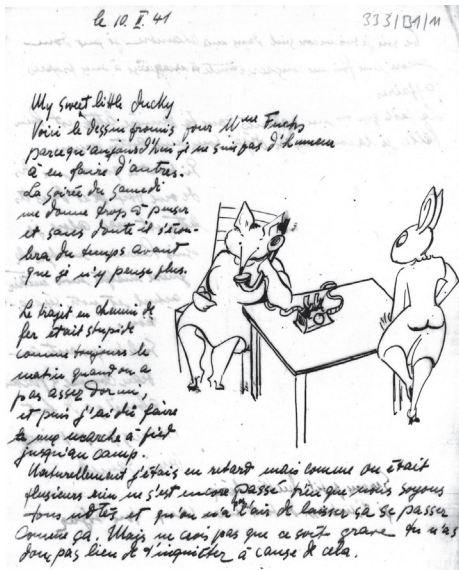 le 10.II.41
333/B1/11
My sweet little ducky
Voici le dessin promis pour Mme Fuchs
parcequ'aujourd'hui je ne suis pas d'humeur
à en faire d'autres.
La soirée du samedi
me donne trop à penser
et sans doute il s'écou-
lera du temps avant
que je n'y pense plus.
Le trajet en chemin de
fer était stupide
comme toujours le
matin quand on a
pas assez dormi,
et puis j'ai dû faire
la marche à pied
jusqu'au camp.
Naturellement j'étais en retard mais comme on était
plusieurs rien ne s'est encore passé que nous soyons
tous notés et qu'on n'a l'air de laisser ça se passer
comme ça. Mais ne crois pas que ce soit grave tu n'as
donc pas lieu de t'inquiéter à cause de cela.